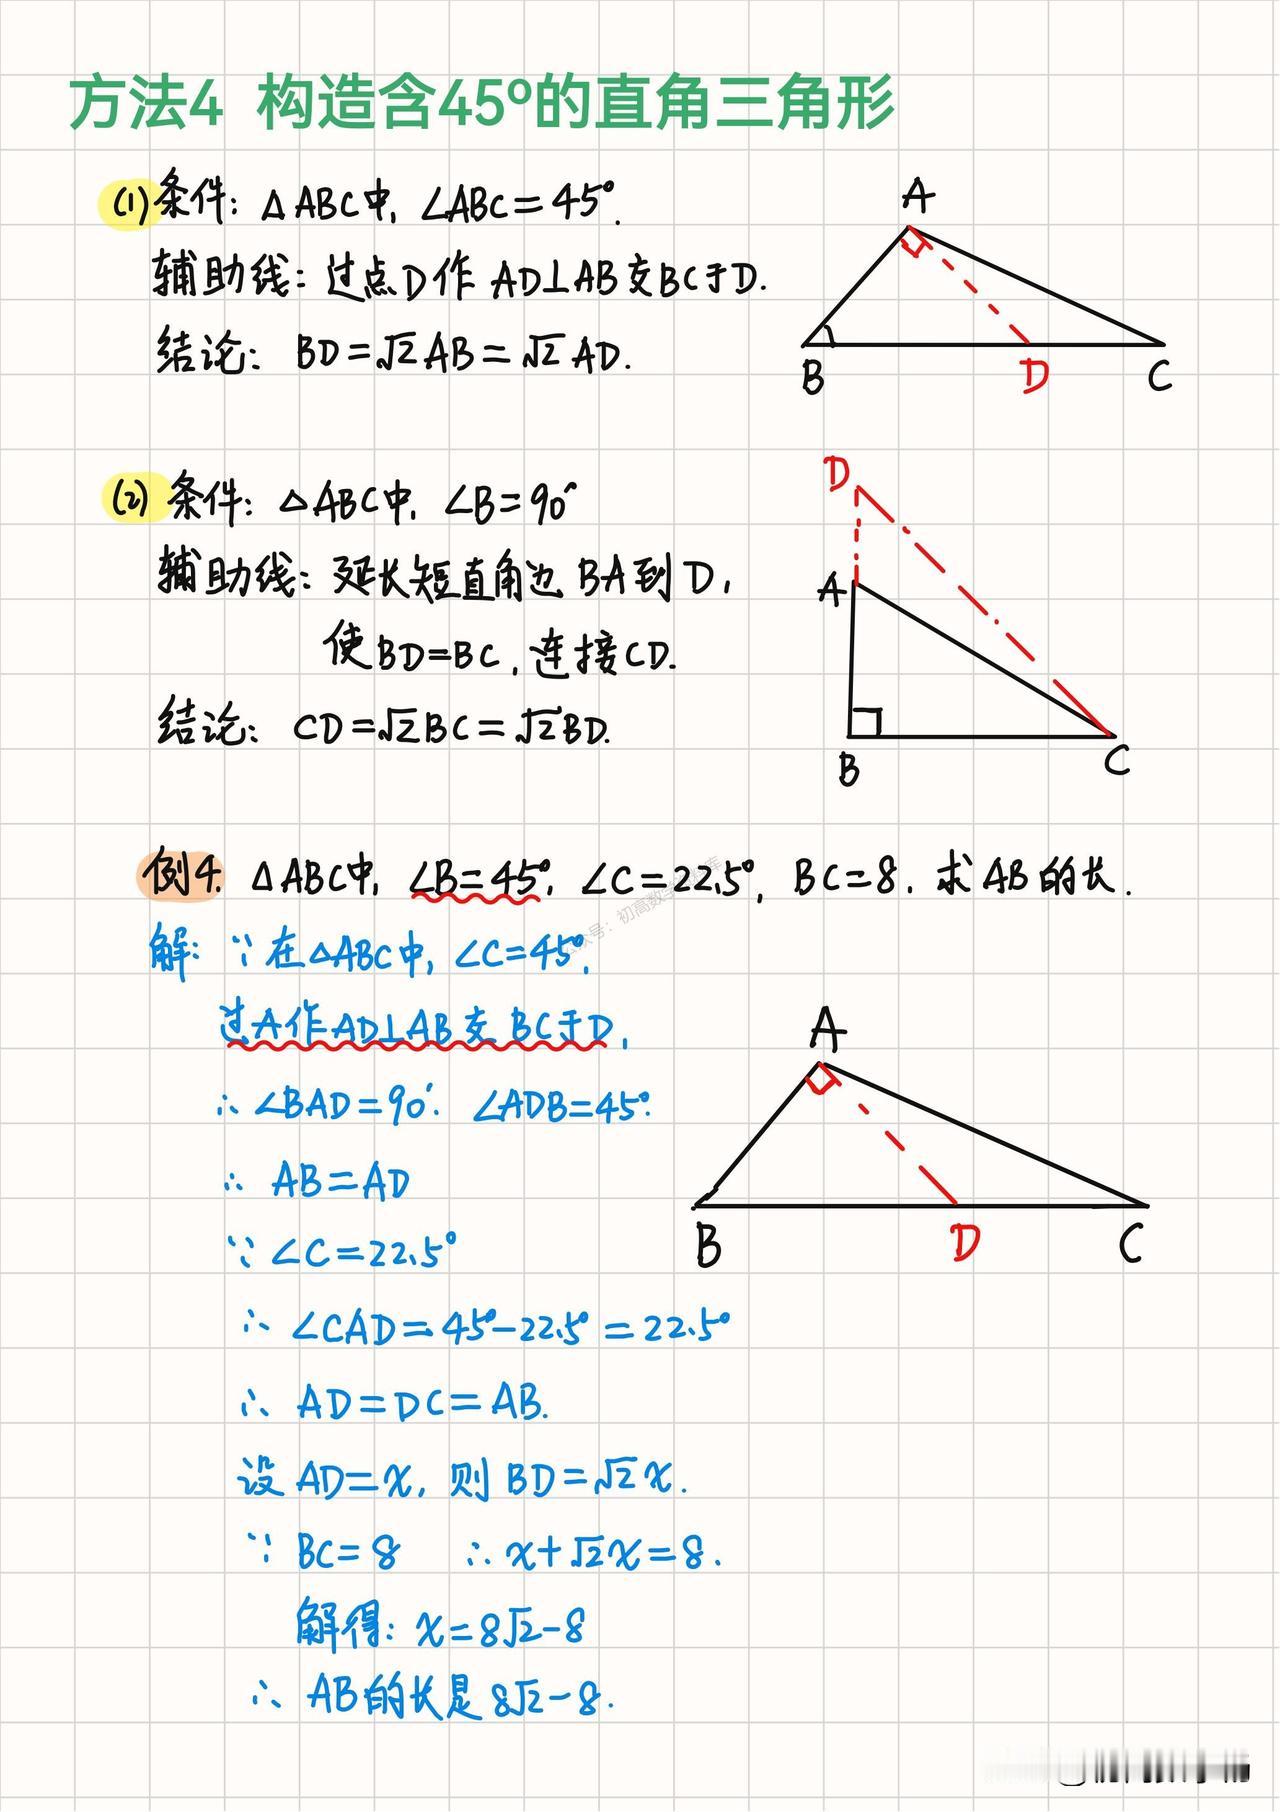 方法4 构造含45°的直角三角形
(1)条件: △ABC中, ∠ABC=45°.
辅助线: 过点D作 AD⊥AB交BC于D.
结论: BD=√2AB=√2AD.
A
B
D
C
(2) 条件: △ABC中, ∠B=90°
辅助线: 延长短直角边 BA到D,
使BD=BC, 连接CD.
结论: CD=√2BC=√2BD.
D
A
B
C
例4. △ABC中, ∠B=45°, ∠C=22.5°, BC=8. 求AB的长.
解: ∵在△ABC中, ∠C=45°,
过A作AD⊥AB交BC于D,
∴ ∠BAD=90°. ∠ADB=45°.
∴ AB=AD
∵ ∠C=22.5°
∴ ∠CAD=45°-22.5°=22.5°
∴ AD=DC=AB.
设 AD=x, 则 BD=√2x.
∵ BC=8 ∴x+√2x=8.
解得: x=8√2-8
∴ AB的长是8√2-8.
A
B
D
C